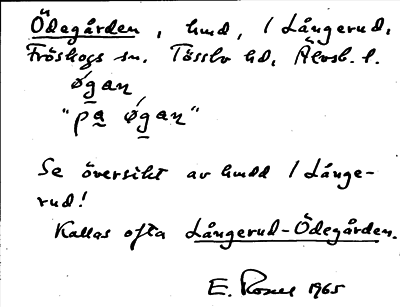 Ödegården, hmd, / Långerud,
Fröskogs sn. Tössbo hd, Älvsb. l.
øgan
"pa øgan"
Se översikt av hmdd / Långe-
rud!
Kallas ofta Långerud-Ödegården.
E. 1965